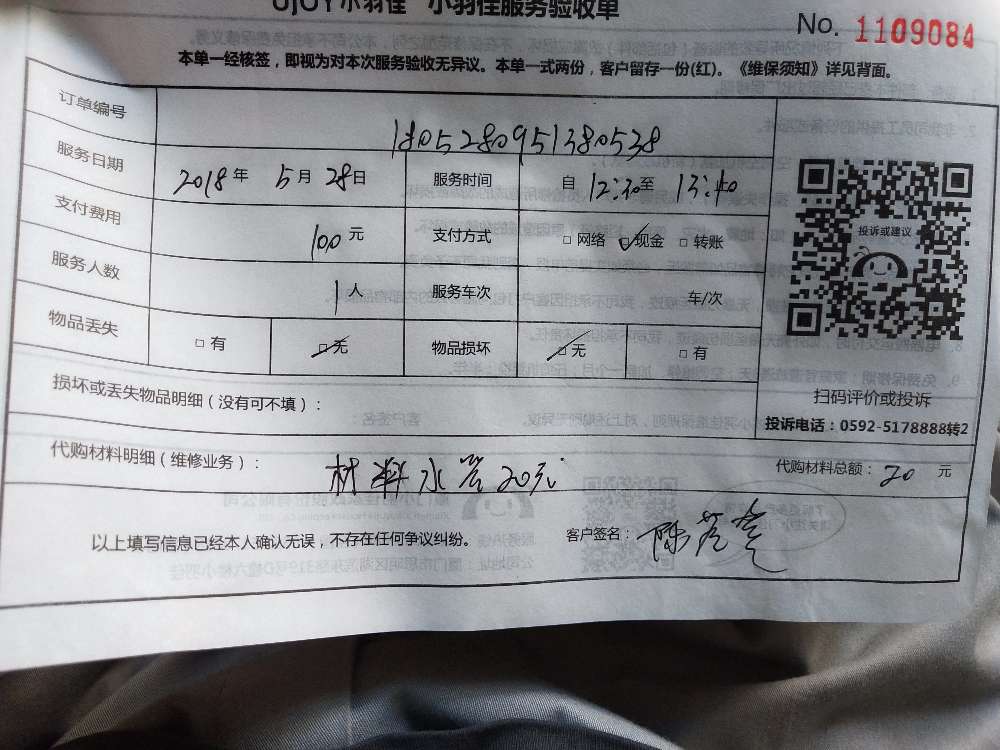 UJOY小羽佳 小羽佳服务验收单
No. 1109084
本单一经核签，即视为对本次服务验收无异议。本单一式两份，客户留存一份(红)。《维保须知》详见背面。
订单编号 1805280951380538
服务日期 2018年 5月 28日 服务时间 自 12:30至 13:40
支付费用 100元 支付方式 □ 网络 ☑现金 □ 转账
服务人数 1人 服务车次 车/次
物品丢失 □ 有 ☑无 物品损坏 ☑无 □ 有
投诉或建议
扫码评价或投诉
投诉电话：0592-5178888转2
损坏或丢失物品明细（没有可不填）：
代购材料明细（维修业务）： 材料水管20元 代购材料总额：20 元
以上填写信息已经本人确认无误，不存在任何争议纠纷。 客户签名：